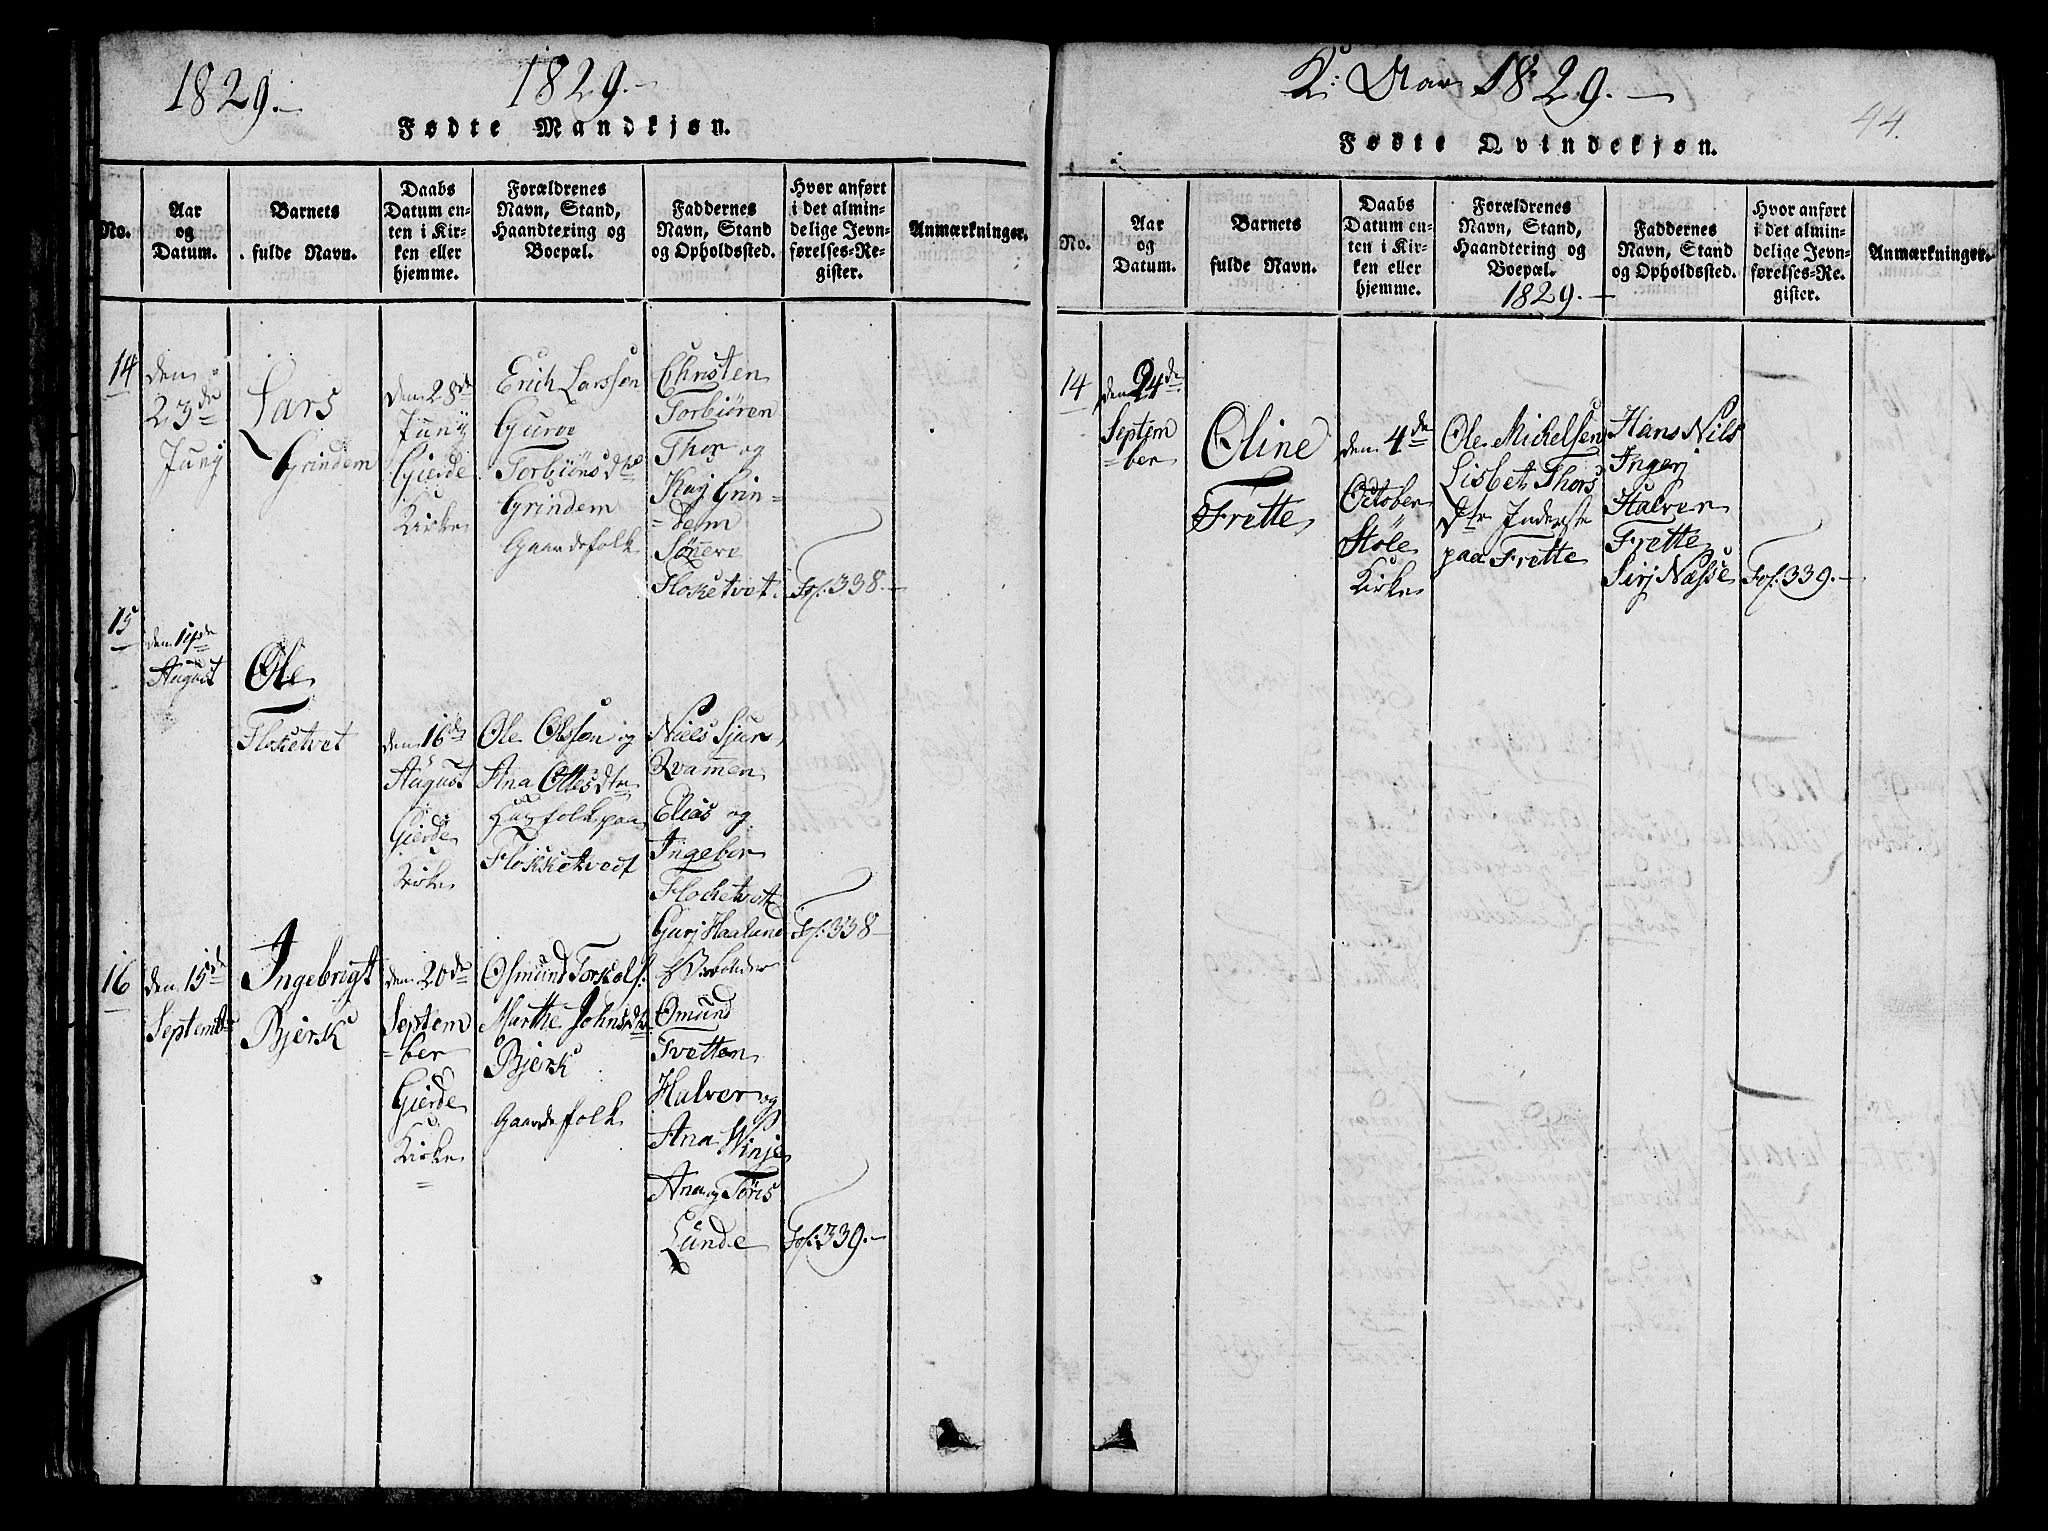 1829.—
1829.—
Fødte Mandkjøn.
No.
Aar
og
Datum.
Barnets
fulde Navn.
Daabs
Datum en-
ten i Kir-
ken eller
hjemme.
Forældrenes
Navn, Stand,
Haandtering og
Boepæl.
Faddernes
Navn, Stand
og Opholdssted.
Hvor anført
i det almin-
delige Jevn-
førelses-Re-
gister.
Anmærkninger.
14
den
23de
Junj
Lars
Grindem
den 28de
Junij
Gierde
Kirke
Erich Larssøn
Guroe
Torbiøns dtr
Grindem
Gaardefolk
Christen
Torbiøren
Thor og
Karj Grin=
=dem
Floketvet.
Fol. 338.—
15
den
August
Ole
Floketvet
den 16de
August
Gierde
Kirke
Ole Olssøn og
Ana Ottesdtr
Husfolk paa
Flokketvedt
Niels Sjurs
Qvamen
Elias og
Ingebor
Flocketvett
Gurj Haaland
Fol. 338—
16
den 15de
Septembr
Ingebrigt
Bjerk
den 20de
Septem
=ber
Gierde
Kirke
Osmund Torkels:
Marthe Johnsdtr
Bjerk
Gaardefolk
Omund
Tvetten
Halver og
Ana Winje
Ana og Tøris
Lunde
Fol. 339.—
1829.—
44.
Fødte Qvindekjøn.
No.
Aar
og
Datum.
Barnets
fulde Navn.
Daabs
Datum en-
ten i Kir-
ken eller
hjemme.
Forældrenes
Navn, Stand,
Haandtering og
Boepæl.
1829.—
Faddernes
Navn, Stand
og Opholdssted.
Hvor anført
i det almin-
delige Jevn-
førelses-Re-
gister.
Anmærkninger.
14
den 24de
Septem
=ber
Oline
Frette
den 4de
October
Støle
Kirke
Ole Michelsen
Lisbet Thors
dtr Inderste
paa Frette
Hans Nils
Ingerj
Halver
Frette
Sirj Næsse
Fol. 339.—